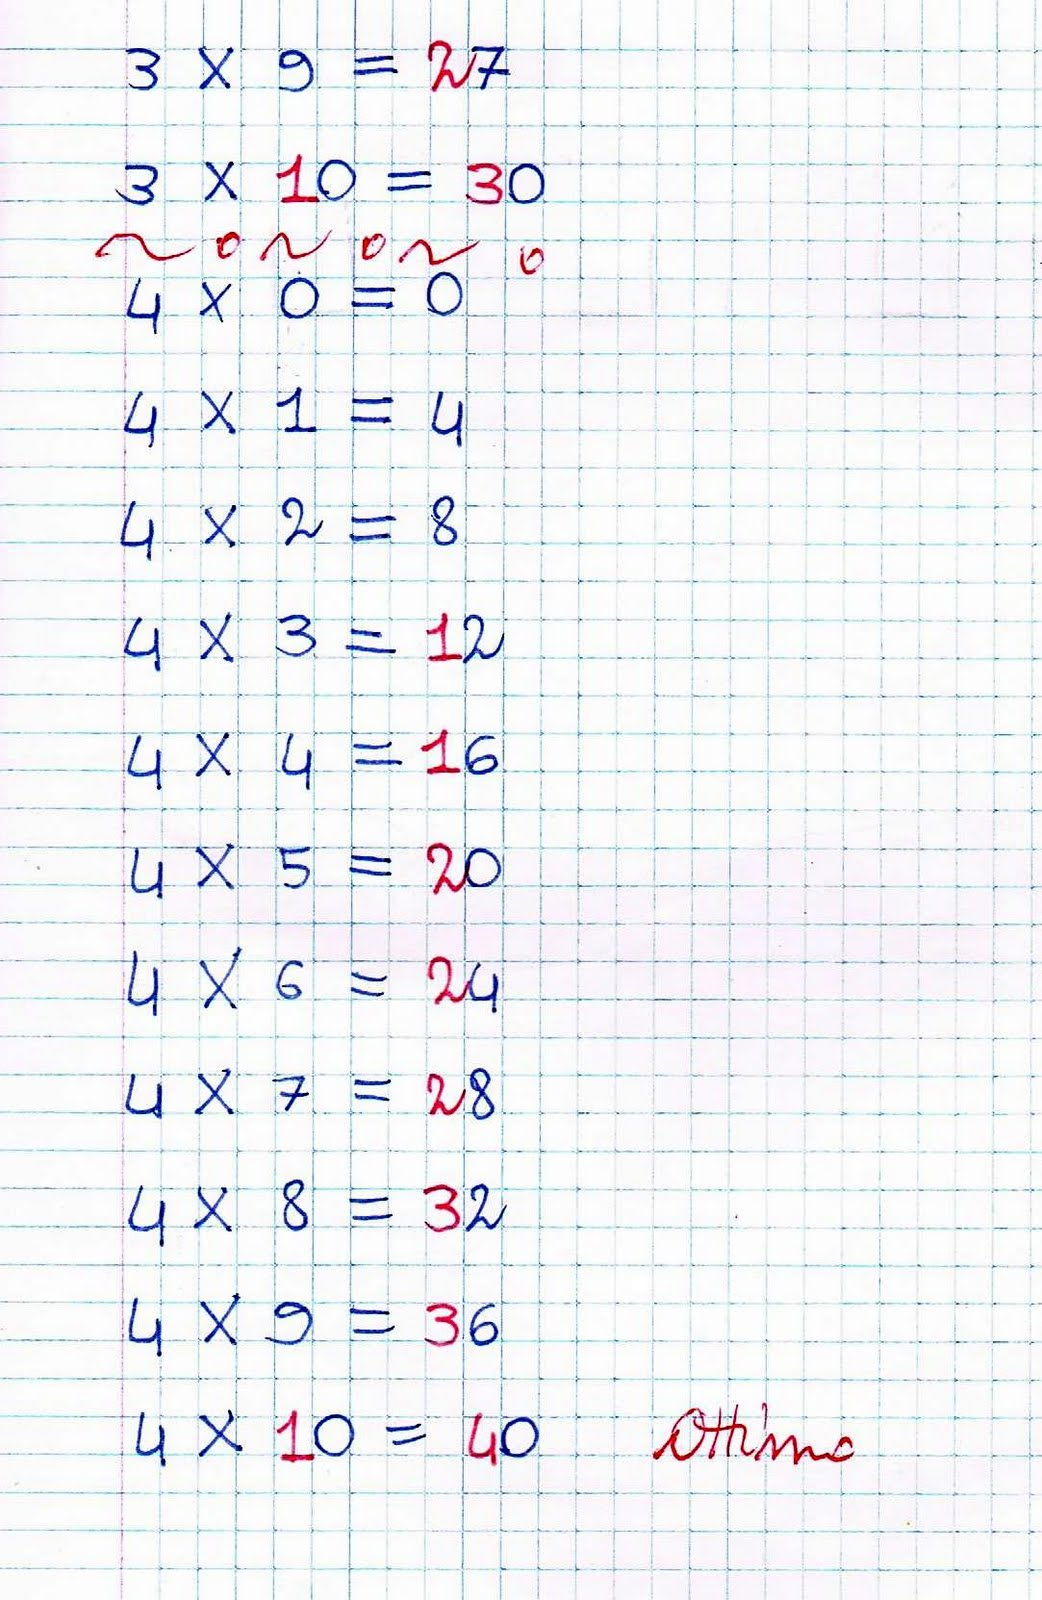 3 x 9 = 27
3 x 10 = 30
4 x 0 = 0
4 x 1 = 4
4 x 2 = 8
4 x 3 = 12
4 x 4 = 16
4 x 5 = 20
4 x 6 = 24
4 x 7 = 28
4 x 8 = 32
4 x 9 = 36
4 x 10 = 40 Ottimo